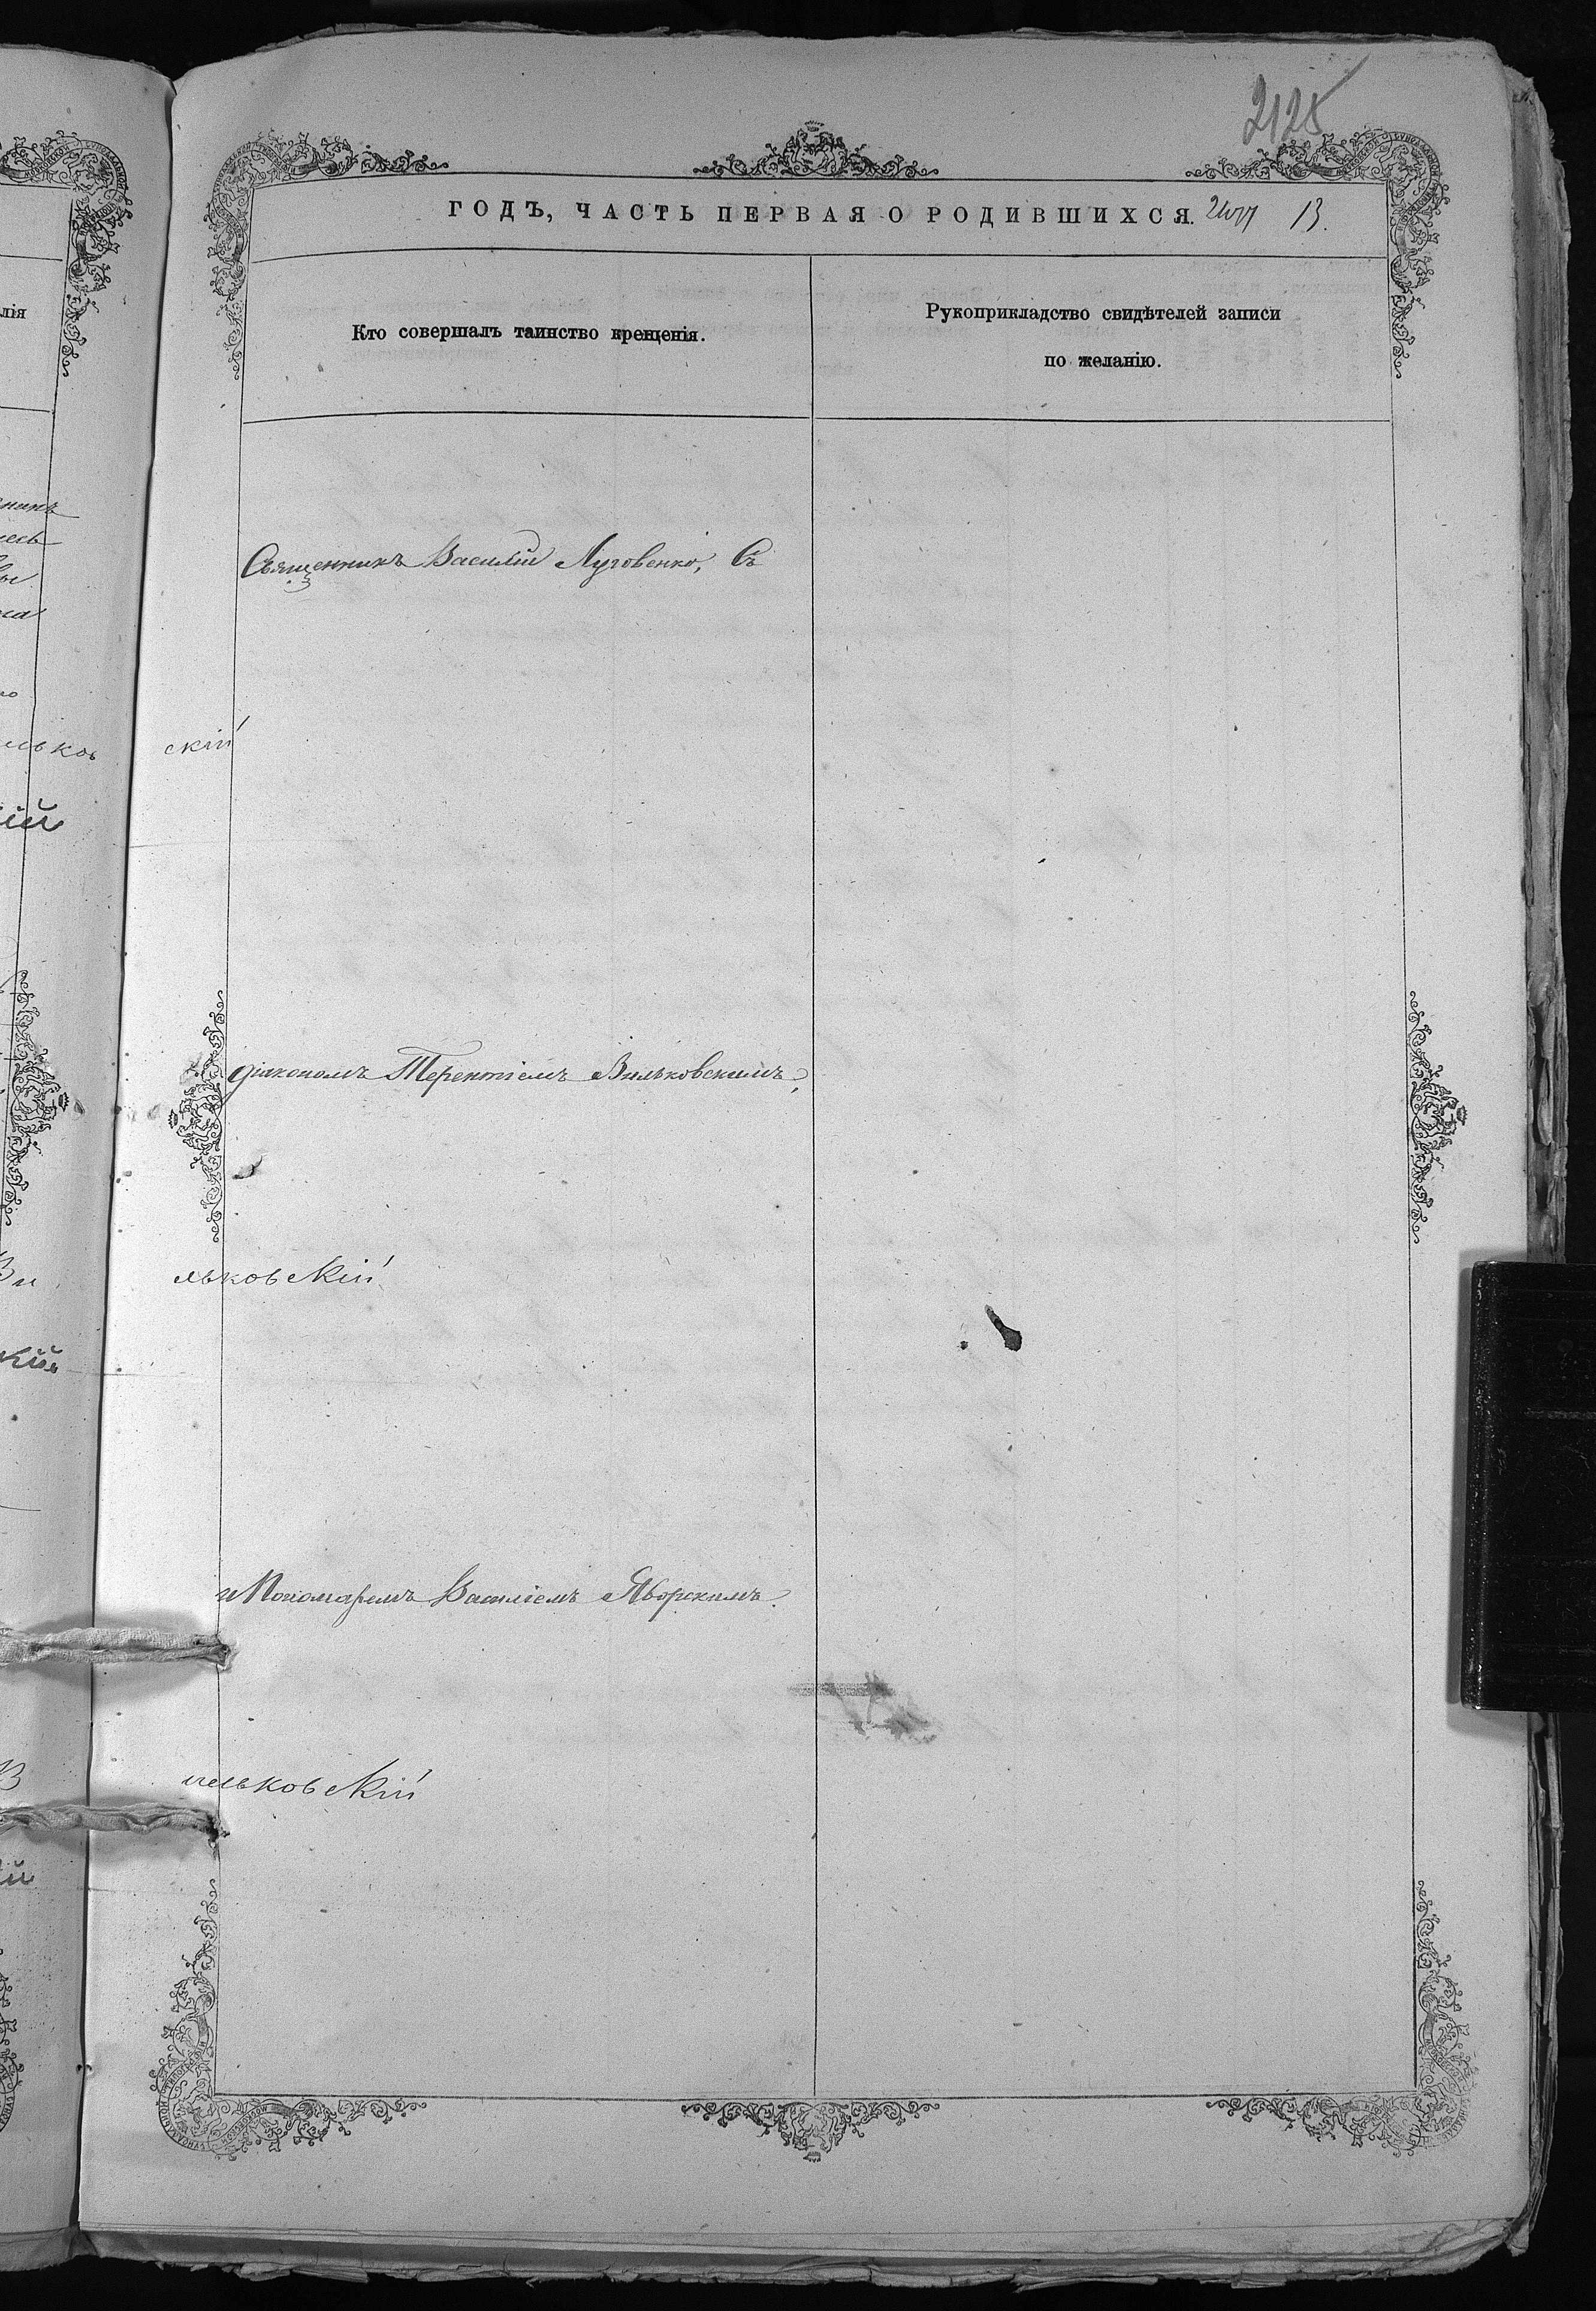 2125
ГОДЪ, ЧАСТЬ ПЕРВАЯ О РОДИВШИХСЯ. 13.
Кто совершалъ таинство крещенія.
Рукоприкладство свидѣтелей записи
по желанію.
Священникъ Василій Луговенко, Съ
скій
діакономъ Терентіемъ Вильковскимъ,
льковскій
и Пономаремъ Василіемъ Яворскимъ.
ильковскій